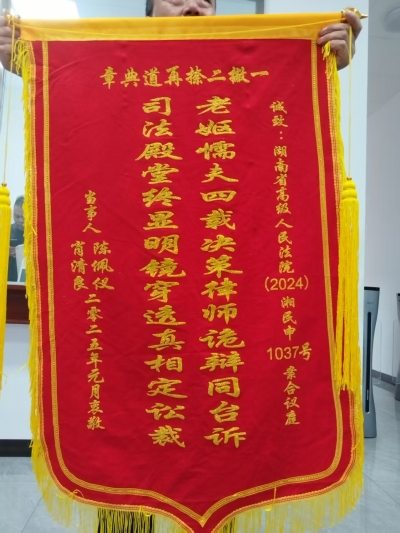 一撇二捺再道典章
诚致：湖南省高级人民法院(2024)湘民申1037号案合议庭
老妪懦夫四载决策律师诡辩同台诉
司法殿堂终显明镜穿透真相定讼裁
当事人 陈佩仪
肖清良
二零二五年元月衷敬